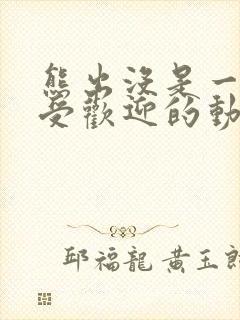 熊出沒是一
受歡迎的動
邱福龍 黃玉郎